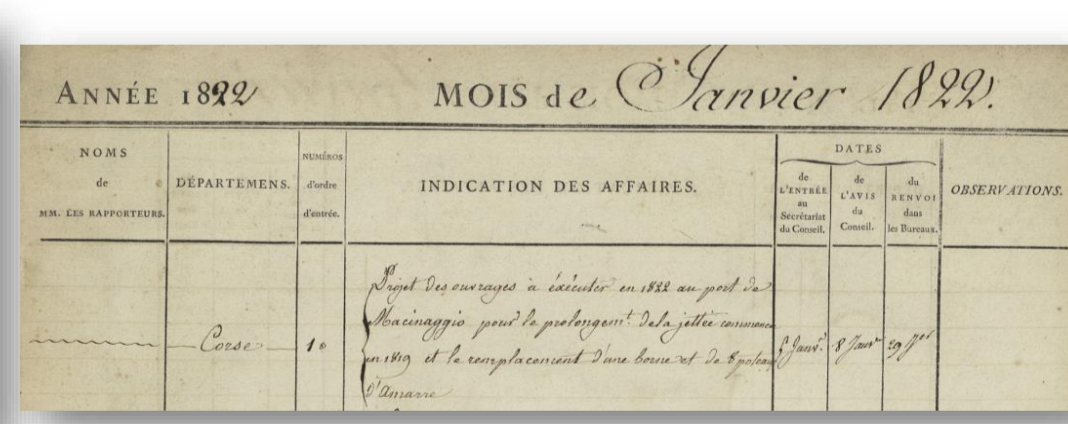 ANNÉE 1822
MOIS de Janvier 1822.
NOMS
de
MM. LES RAPPORTEURS.
DÉPARTEMENS.
NUMÉROS
d'ordre
d'entrée.
INDICATION DES AFFAIRES.
DATES
de
L'ENTRÉE
au
Secrétariat
du Conseil.
de
L'AVIS
du
Conseil.
du
RENVOI
dans
les Bureaux.
OBSERVATIONS.
Corse
Projet des ouvrages à éxécuter en 1822 au port de
Macinaggio pour le prolongemt. de la jettée commencé
en 1819 et le remplacement d'une borne et de 8 poteaux
d'amarre
Janvr. 8 Janvr 29